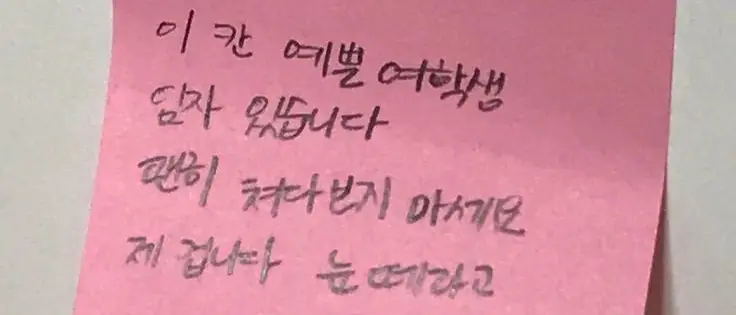 이 칸 예쁠 여학생
임자 있습니다
괜히 쳐다보지 마세요
제 겁니다 눈떼라고